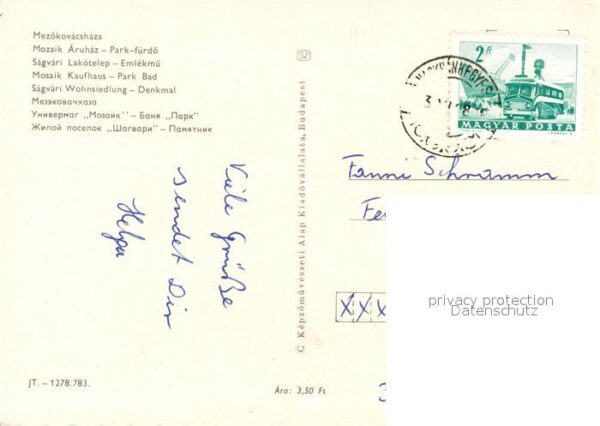 Mezőkovácsháza
Mozaik Áruház – Park-fürdő
Ságvári Lakótelep – Emlékmű
Mosaik Kaufhaus – Park Bad
Ságvári Wohnsiedlung – Denkmal
Мезэковачхоза
Универмаг „Мозаик" – Баня „Парк"
Жилой поселок „Шагвари" – Памятник
Viele Grüße
sendet Dir
Helga
JT. – 1278.783.
Ára: 3,50 Ft
C Képzőművészeti Alap Kiadóvállalata, Budapest
2 Ft
MAGYAR POSTA
Fanni Schramm
Fe
XXX
privacy protection
Datenschutz